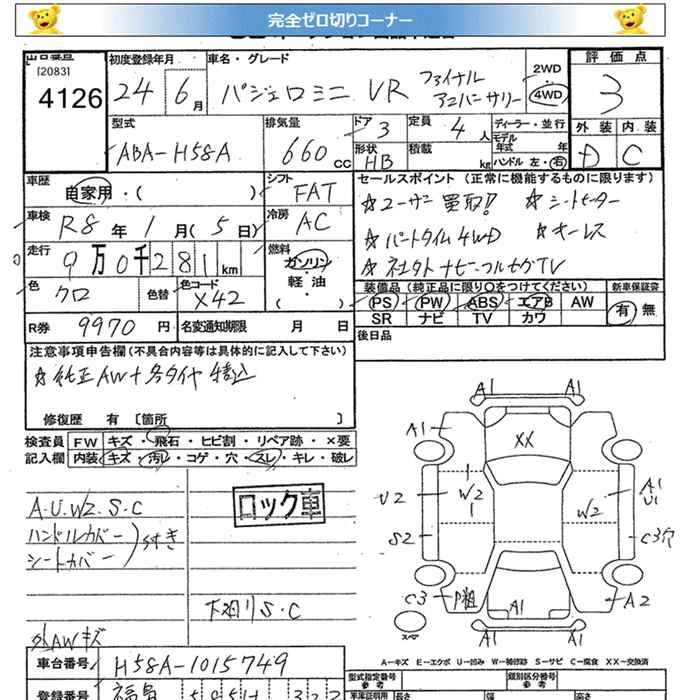 完全ゼロ切りコーナー
出品番号
[2083]
4126
初度登録年月
24 6月
車名・グレード
パジェロミニ VR ファイナル
アニバーサリー
2WD
4WD
評価点
3
型式
ABA-H58A
排気量
660 CC
ドア 3
定員 4人
ディーラー・並行
モデル年式 年
形状 HB
積載 kg
ハンドル 左・右
外装 内装
D C
車歴
自家用・( )
シフト
FAT
セールスポイント(正常に機能するものに限ります)
☆ユーザー買取!! ☆シートヒーター
☆パートタイム4WD ☆キーレス
☆社外ナビ・フルセグTV
車検
R8年 1月(5日)
冷房
AC
走行
9万0千281km
燃料
ガソリン
軽油
( )
色
クロ
色替
色コード
X42
装備品(純正品に限り○をつけてください)
新車保証書
PS PW ABS エアB AW
SR ナビ TV カワ
有 無
R券 9970円
名変通知期限 月 日
後日品
注意事項申告欄(不具合内容等は具体的に記入して下さい)
☆純正AW+冬タイヤ積込
修復歴 有 [箇所 ]
検査員 FW キズ・飛石・ヒビ割・リペア跡・×要
記入欄 内装 キズ・汚レ・コゲ・穴・スレ・キレ・破レ
A.U.W2.S.C
ハンドルカバー
シートカバー
ロック車
下廻りS.C
外AWキズ
A1 A1
A1
XX
U2
W2
W2
A1
U1
S2
C3穴
C3
P粗
A1
A2
スペア
A1 A1
A-キズ E-エクボ U-凹み W-補修跡 S-サビ C-腐食 XX-交換済
車台番号 H58A-1015749
登録番号 福島
型式指定番号
類別区分番号